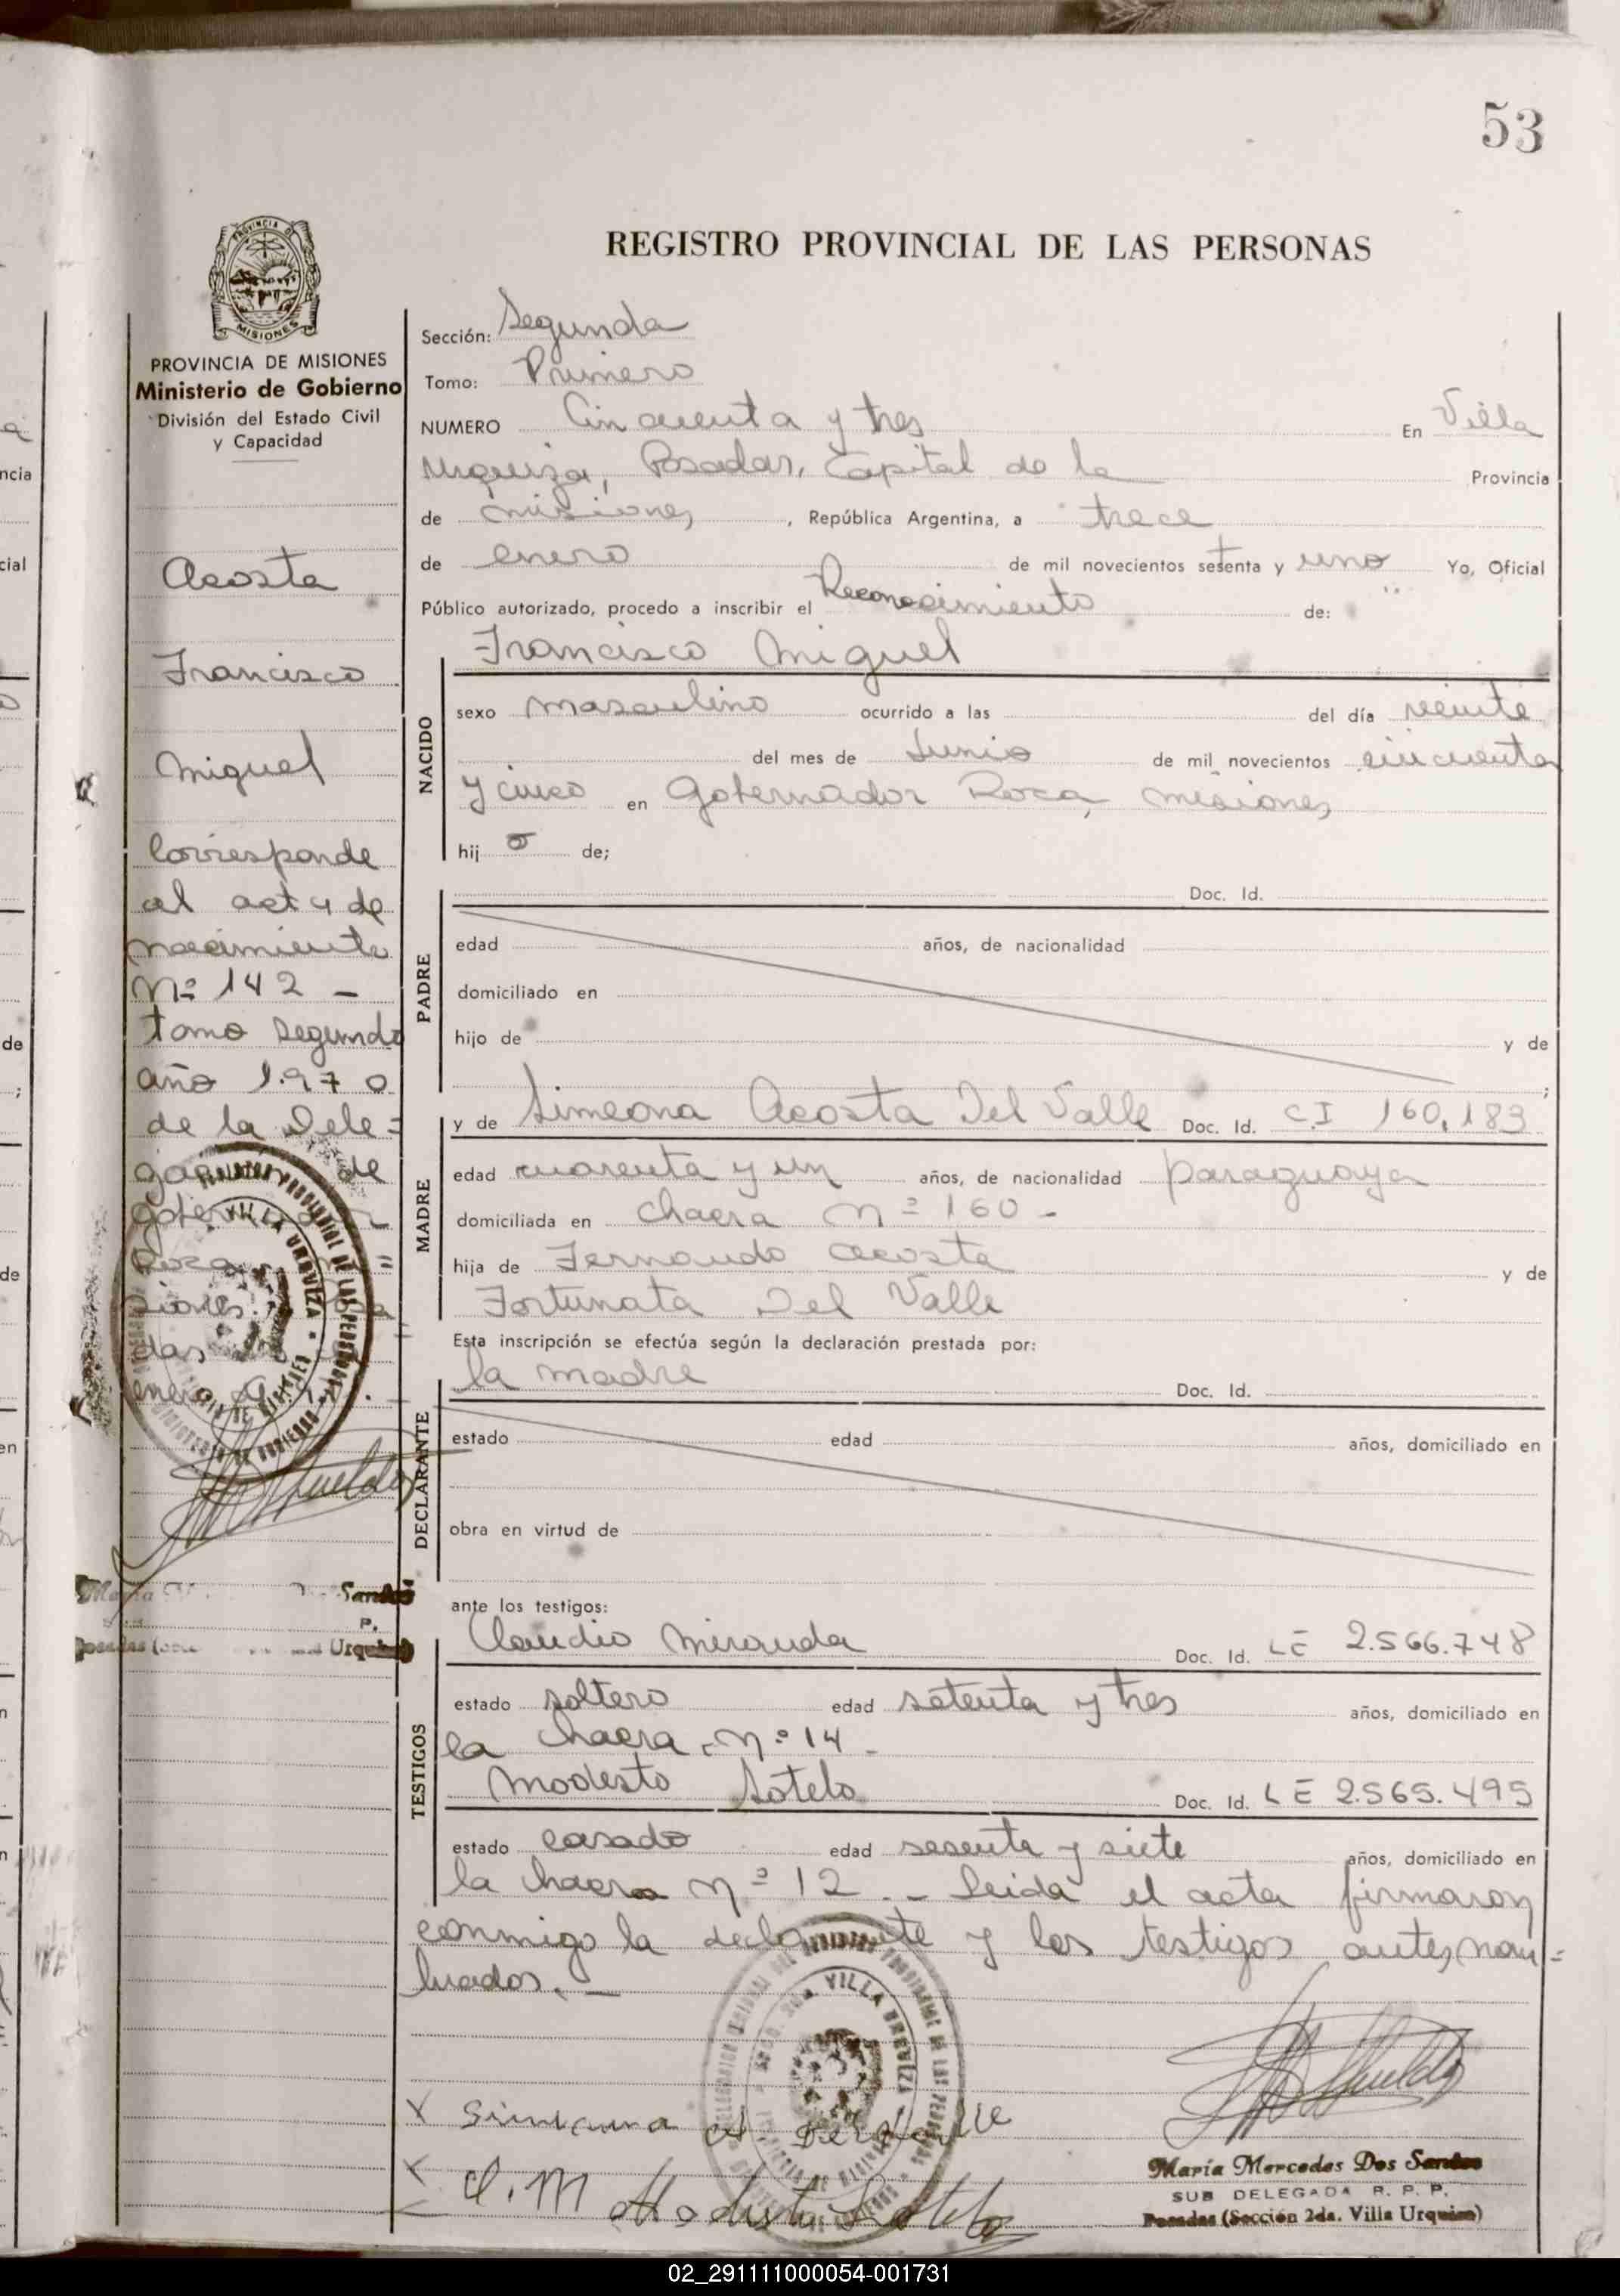 53
REGISTRO PROVINCIAL DE LAS PERSONAS
PROVINCIA DE MISIONES
Ministerio de Gobierno
División del Estado Civil
y Capacidad
Acosta
Francisco
Miguel
Corresponde
al acta de
nacimiento
Nº 142 -
tomo segundo
año 1.970
de la Dele=
gación de
Gobernador
Roca
Sección: Segunda
Tomo: Primero
NUMERO Cincuenta y tres En Villa
Urquiza, Posadas, Capital de la Provincia
de Misiones, República Argentina, a trece
de enero de mil novecientos setenta y uno Yo, Oficial
Público autorizado, procedo a inscribir el Reconocimiento de:
Francisco Miguel
NACIDO
sexo masculino ocurrido a las del día veinte
del mes de Junio de mil novecientos cincuenta
y cinco en Gobernador Roca, Misiones
hij o de;
Doc. Id.
PADRE
edad años, de nacionalidad
domiciliado en
hijo de y de
;
MADRE
y de Simeona Acosta Del Valle Doc. Id. C.I 160,183
edad cuarenta y un años, de nacionalidad paraguaya
domiciliada en chacra Nº 160 -
hija de Fernando Acosta y de
Fortunata Del Valle
Esta inscripción se efectúa según la declaración prestada por:
la madre Doc. Id.
DECLARANTE
estado edad años, domiciliado en
obra en virtud de
ante los testigos:
Claudio Miranda Doc. Id. LE 2.566.748
TESTIGOS
estado soltero edad setenta y tres años, domiciliado en
la chacra Nº 14 -
Modesto Sotelo Doc. Id. LE 2.565.495
estado casado edad sesenta y siete años, domiciliado en
la chacra Nº 12 . - Leida el acta firmaron
conmigo la declarante y los testigos antes nom=
brados. -
VILLA URQUIZA
X Simeona A. Del Valle
X C. M Modesto Sotelo
María Mercedes Dos Santos
SUB DELEGADA R. P. P.
Posadas (Sección 2da. Villa Urquiza)
02_291111000054-001731